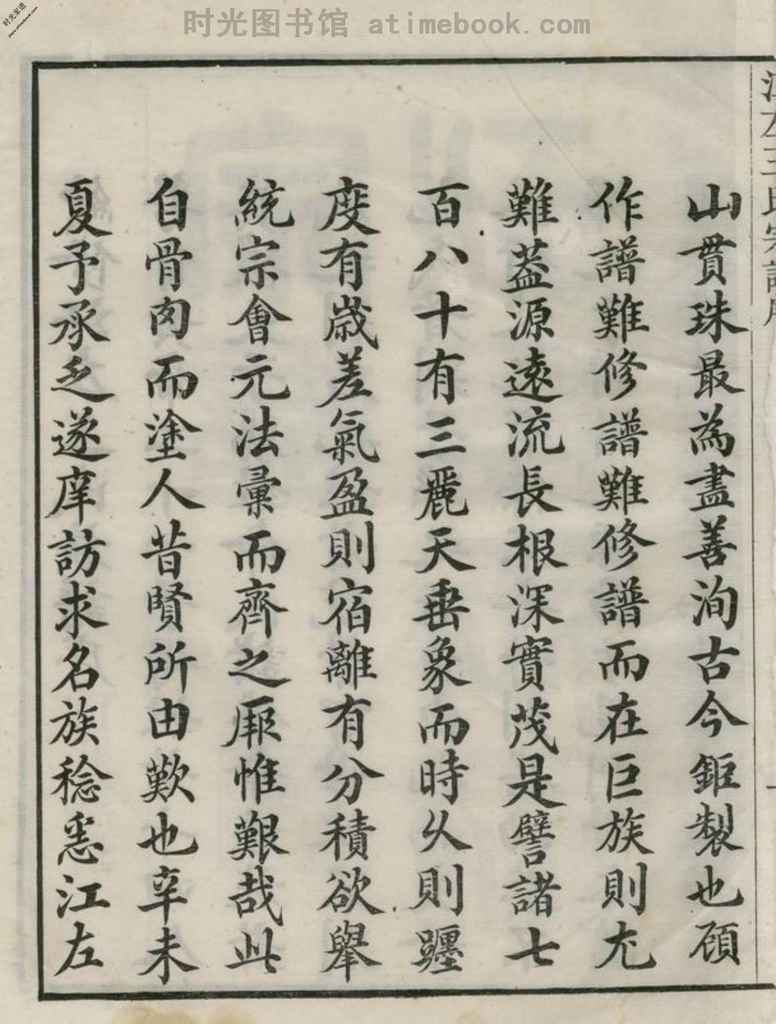 时光图书馆 atimebook.com
山貫珠最為盡善洵古今鉅製也顧
作譜難修譜難修譜而在巨族則尤
難蓋源遠流長根深實茂是譬諸七
百八十有三麗天垂象而時久則躔
度有歲差氣盈則宿離有分積欲舉
統宗會元法彙而齊之厥惟艱哉此
自骨肉而塗人昔賢所由歎也辛未
夏予承乏遂庠訪求名族稔悉江左